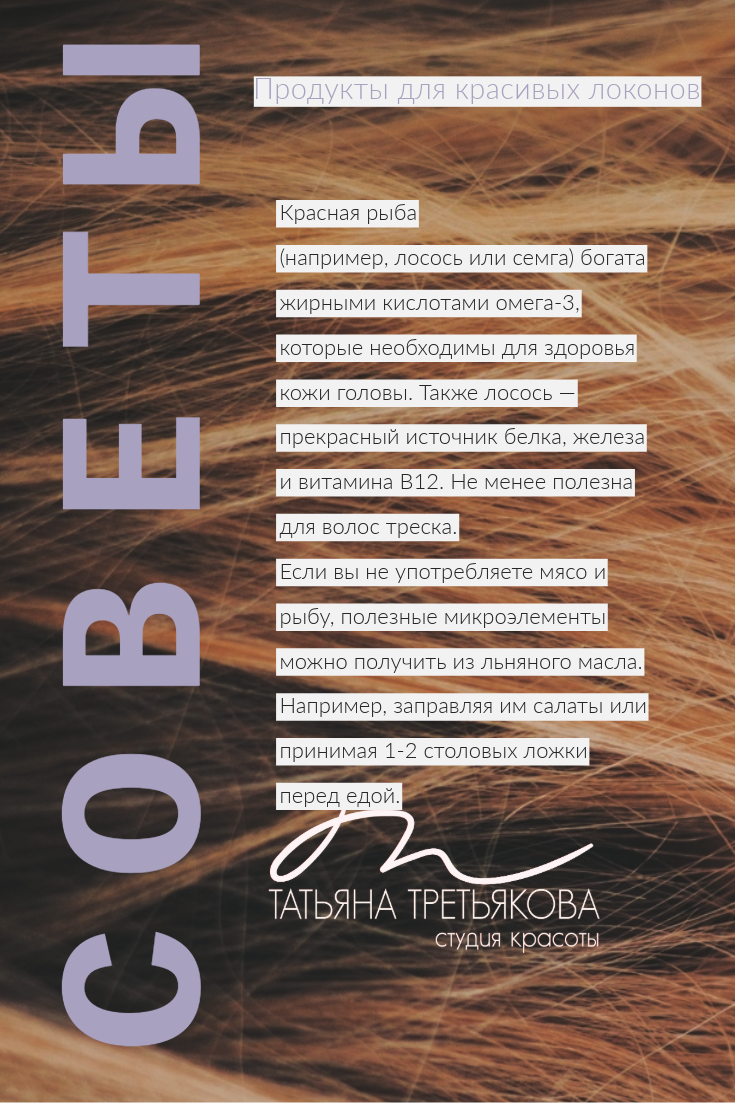 СОВЕТЫ
Продукты для красивых локонов
Красная рыба
(например, лосось или семга) богата
жирными кислотами омега-3,
которые необходимы для здоровья
кожи головы. Также лосось —
прекрасный источник белка, железа
и витамина В12. Не менее полезна
для волос треска.
Если вы не употребляете мясо и
рыбу, полезные микроэлементы
можно получить из льняного масла.
Например, заправляя им салаты или
принимая 1-2 столовых ложки
перед едой.
ТАТЬЯНА ТРЕТЬЯКОВА
студия красоты